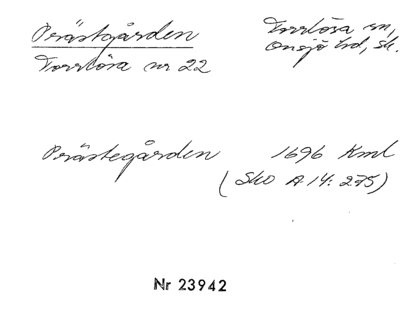 Prästgården
Torrlösa sn,
Onsjö hd, Sk.
Torrlösa nr 22
Prästegården 1696 Kml
(Sko A 14: 275)
Nr 23942